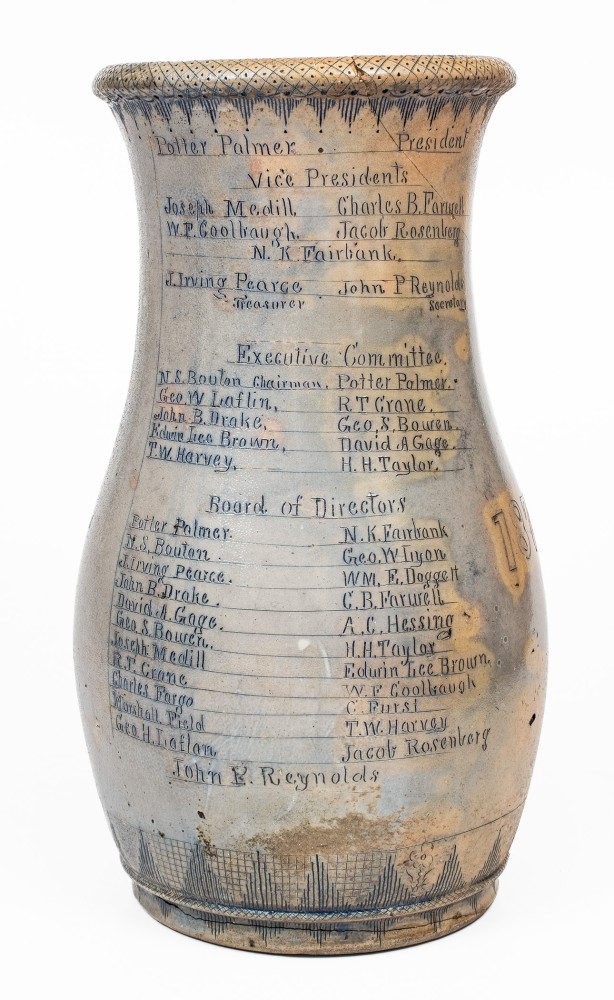 Potter Palmer. President
Vice Presidents
Joseph Medill Charles B. Farwell
W.F. Coolbaugh. Jacob Rosenberg
N. K. Fairbank.
J. Irving Pearce John P Reynolds
Treasurer Secretary
Executive Committee.
N.S. Bouton Chairman. Potter Palmer.
Geo. W Laflin, R.T Crane.
John B. Drake, Geo. S. Bowen.
Edwin Lee Brown, David A Gage.
T.W. Harvey. H.H. Taylor.
Board of Directors
Potter Palmer. N.K. Fairbank
N.S. Bouton. Geo. W Lyon
J. Irving Pearce. WM. E. Doggett
John B. Drake. C.B. Farwell
David A. Gage. A.C. Hessing
Geo. S. Bowen. H.H. Taylor
Joseph Medill Edwin Lee Brown,
R.T. Crane W.F Coolbaugh
Charles Fargo C. Furst
Marshall Field T.W. Harvey
Geo. H. Laflan Jacob Rosenberg
John P. Reynolds